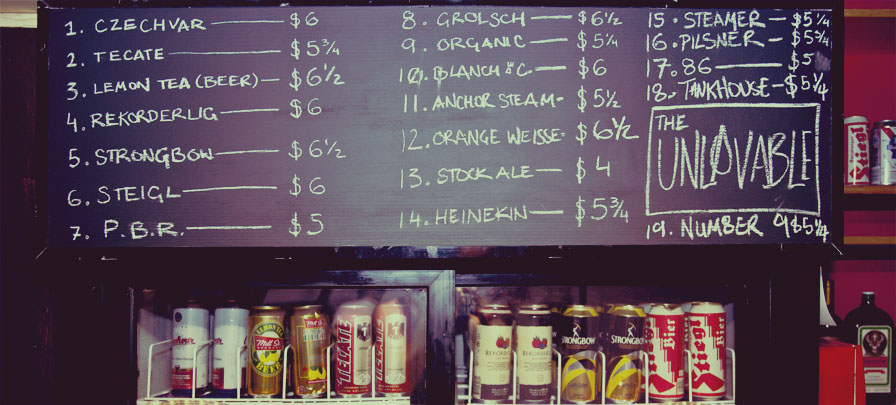 1. CZECHVAR — $6
2. TECATE — $5 3/4
3. LEMON TEA (BEER) — $6 1/2
4. REKORDERLIG — $6
5. STRONGBOW — $6 1/2
6. STEIGL — $6
7. P.B.R. — $5
8. GROLSCH — $6 1/2
9. ORGANIC — $5 1/4
10. BLANCH d C. — $6
11. ANCHOR STEAM - $5 1/2
12. ORANGE WEISSE - $6 1/2
13. STOCK ALE — $4
14. HEINEKIN — $5 3/4
15. STEAMER — $5 1/4
16. PILSNER — $5 3/4
17. 86 — $5
18. TANKHOUSE — $5 1/4
THE
UNLOVABLE
19. NUMBER 9 $5 1/4
Stiegl
Mill St
BEER
Mill St
TECATE
TECATE
REKORD
REKORD
STRONGBOW
STRONGBOW
Stiegl
Bier
Stiegl
Bier